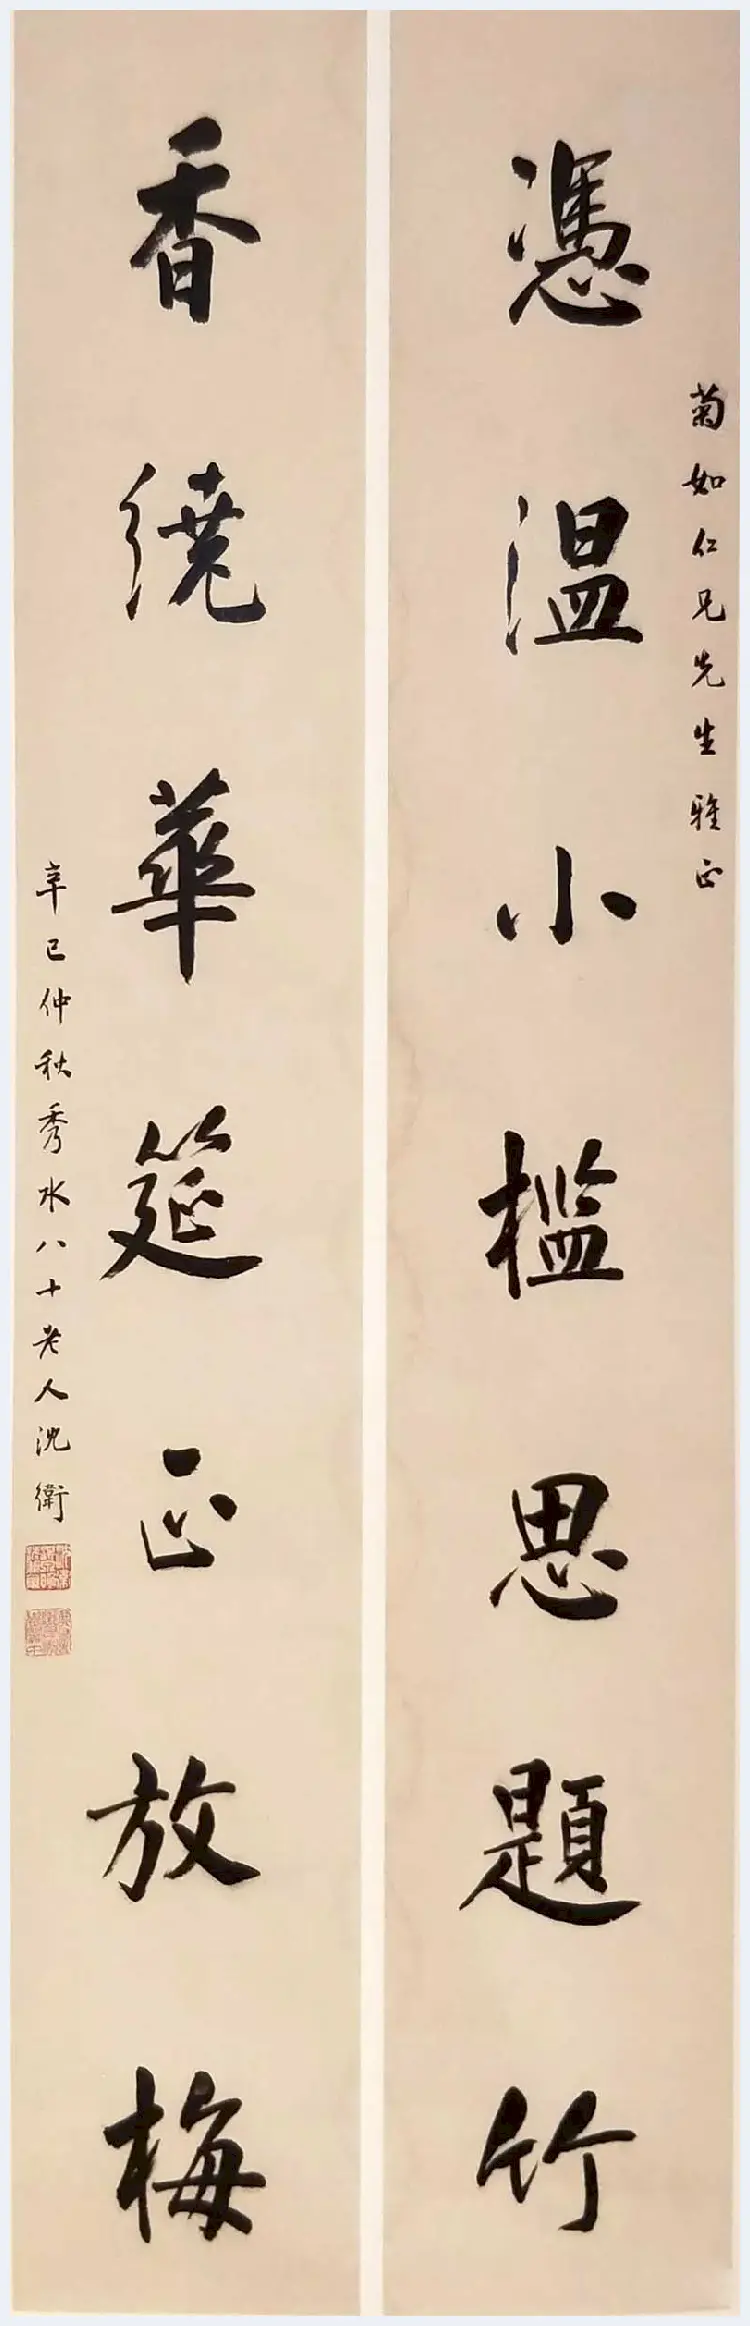 菊如仁兄先生雅正
憑温小檻思題竹
香繞華筵正放梅
辛巳仲秋秀水八十老人沈衛